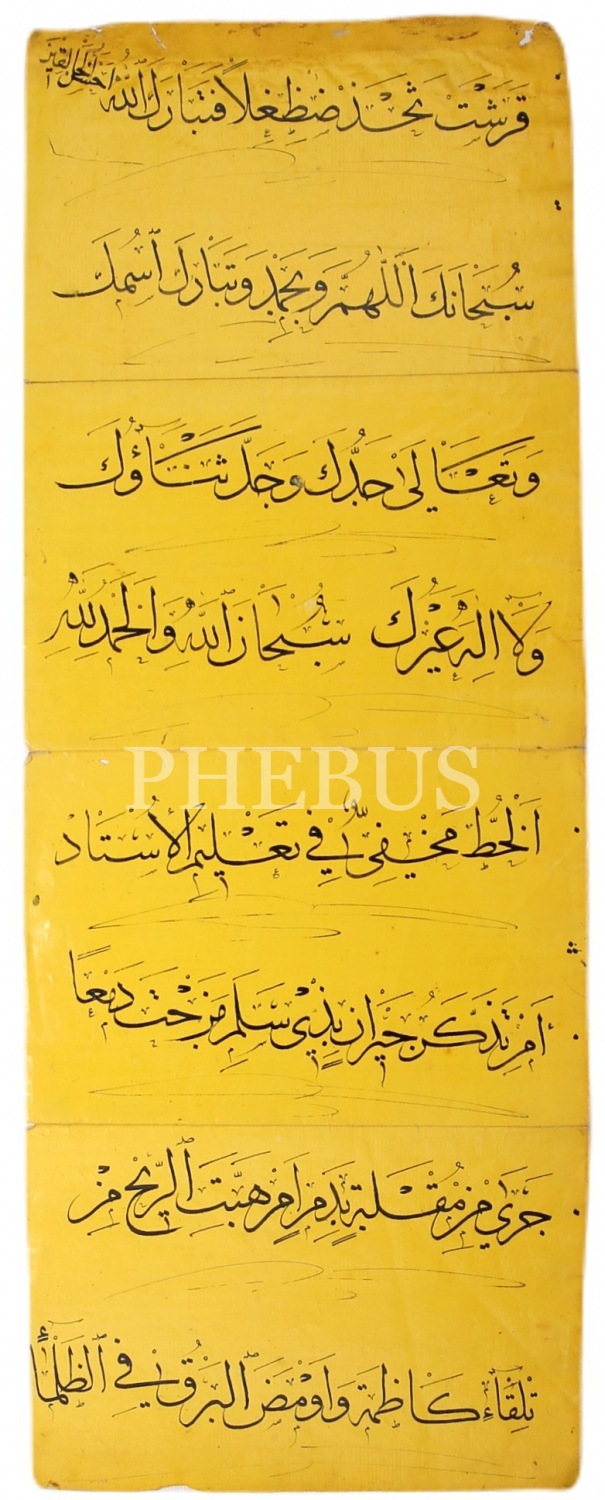 قرشت ثخذ ضظغلا فتبارك الله احسن الخالقين
سبحانك اللهم وبحمدك وتبارك اسمك
وتعالى جدك وجل ثناؤك
ولا اله غيرك سبحان الله والحمد لله
PHEBUS
الخط مخفي في تعليم الأستاذ
أمن تذكر جيران بذي سلم مزجت دمعا
جرى من مقلة بدم ام هبت الريح من
تلقاء كاظمة واومض البرق في الظلماء